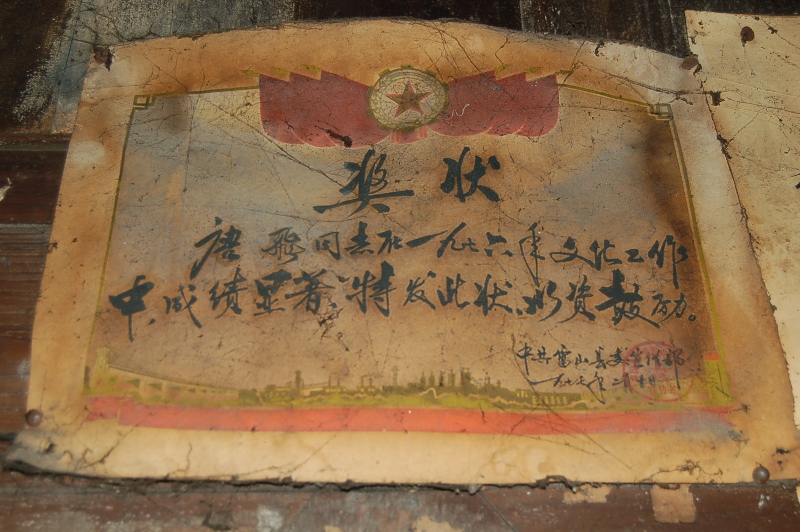 奖状
唐飛同志在一九七六年文化工作
中，成绩显著，特发此状，以资鼓励。
中共雷山县委宣传部
一九七七年二月十日